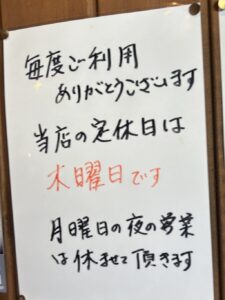 毎度ご利用
ありがとうございます
当店の定休日は
木曜日です
月曜日の夜の営業
は休ませて頂きます